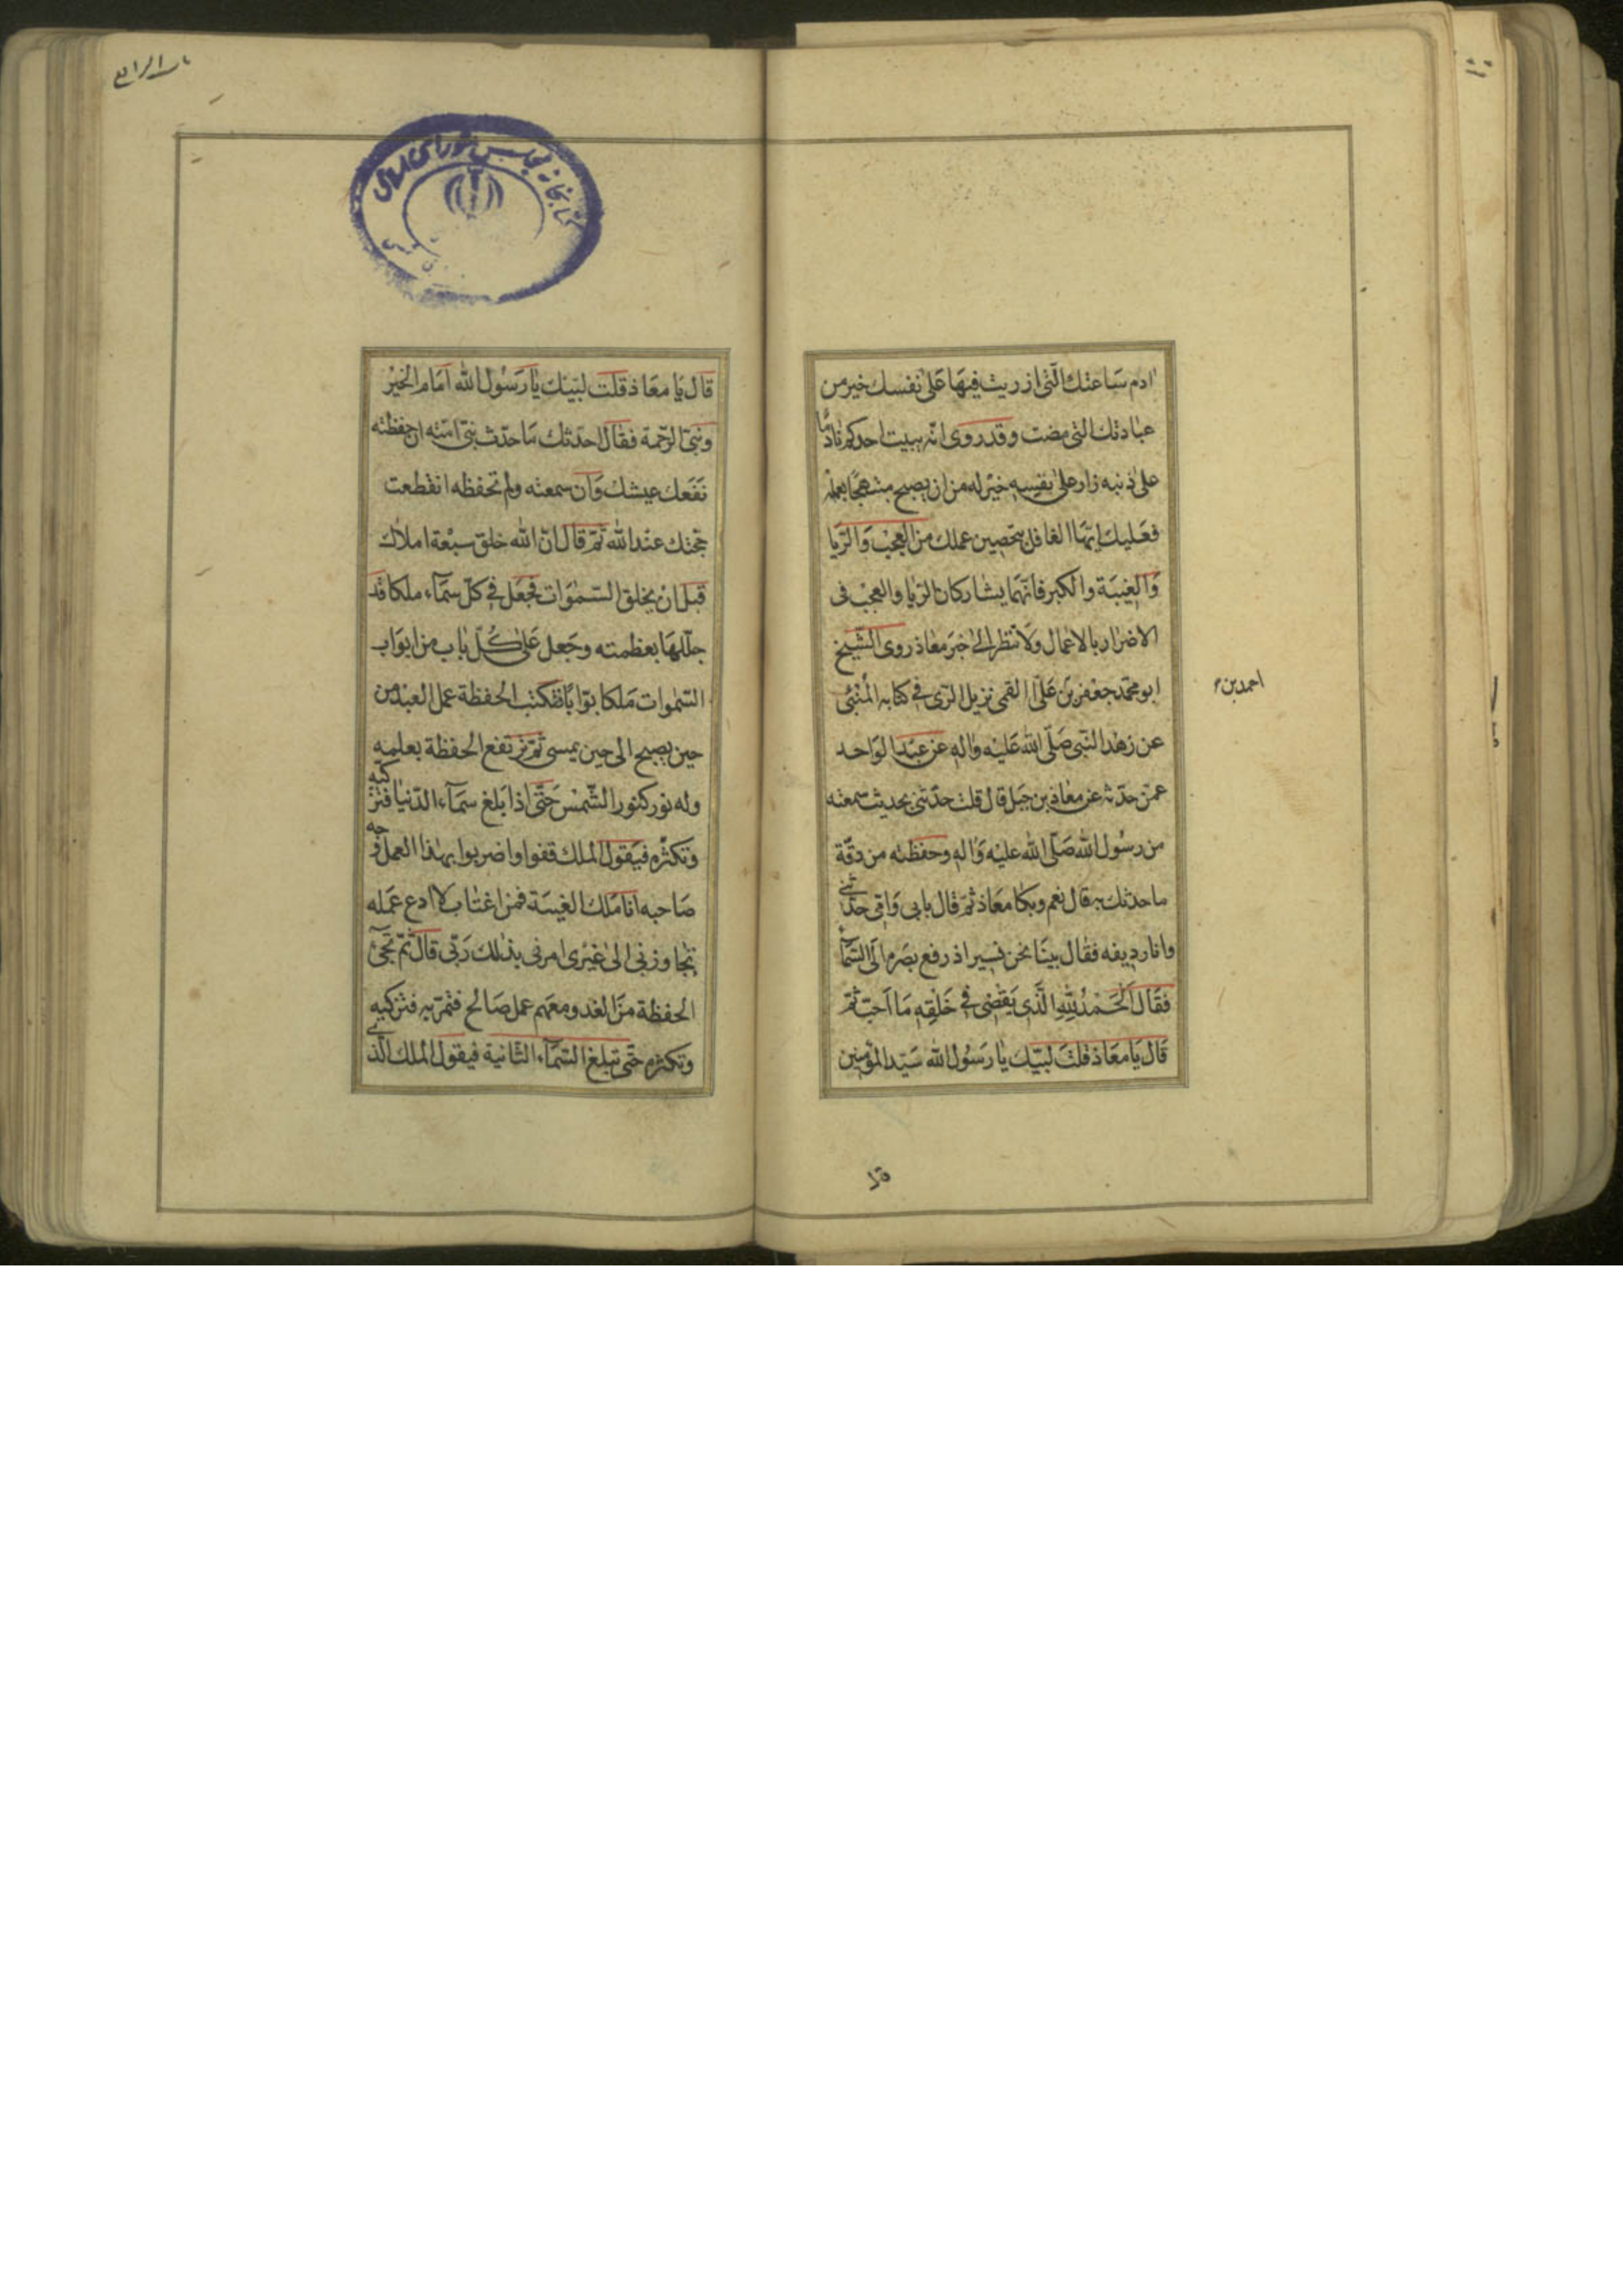 ادم ساعتك الّتى ازريت فيهَا عَلىٰ نفسك خير من
عبادتك التى مضت وقد روى انّه يبيت احدكم نادمًا
على ذنبه زار على نفسِه خيْر له من ان يصبح مبتهجًا بعمله
فعَليك ايّها الغافل بتحصين عملك من العجْب وَالرّيا
وَالغِيبَة والكبر فانّهمَا يشاركان الرّيا والعجْب فى
الاضرار بالاعمال وَلا تنظر الىٰ خبَر معاذ روى الشّيخ
ابو محمّد جعْفر بن عَلىّ القمى نزيل الرّى فى كتابه المُنْبئ
احمد بن
عن زهد النّبى صَلّى الله عَليْه واٰلهِ عن عبْد الوَاحد
عمّن حدّثه عن معاذ بن جبَل قال قلت حدّثنى بحديث سمعته
من رسُول الله صَلّى الله عليْه وَاٰلهِ وحفظته من دقّة
ما حدثك به قال نعم وبكا معَاذ ثمّ قال بابى وَامّى حدّثنى
وانا رديفه فقال بينَا نحن نسير اذ رفع بصَره الى السّمآء
فقَال اَلحَمْدُ لِلّٰهِ الّذى يَقْضِى فى خَلْقِهِ مَا اَحبّ ثمّ
قال يَا معَاذ قلتَ لبّيك يٰا رَسُول الله سَيّد المؤمِنين
باب الرابع
قال يَا معَاذ قلت لبّيك يٰا رَسُول الله اَمَام الخيْر
ونبىّ الرّحمة فقال احدّثك مَا حدّث نبىّ امّته ان حفظته
نفَعَك عيشك وَان سمعته ولم تحفظه انقطعت
حجّتك عنْد الله ثمّ قال انّ الله خلق سبْعة املاك
قبل انْ يخلق السّمٰوات فجعَل فى كلّ سمآء ملكا قد
جلّلهَا بعظمته وجَعل عَلىٰ كُلّ باب من ابوَاب
السّمٰوات مَلكا بوّابًا فتكتب الحفظة عمل العبْد من
حين يصبح الى حين يمسى ثمّ ترتفع الحفظة بعلمه
وله نور كنور الشّمسْ حَتّى اذا بَلغ سمَآء الدّنيا فتزكيه
وتكثره فيَقول الملك قفوا واضربوا بهٰذا العمل وجه
صَاحبه انا مَلك الغيبَة فمن اغتاب لا ادع عمَله
يتجاوزنى الىٰ غيْرى امرنى بذٰلك رَبّى قال ثمّ تجىٔ
الحفظة منَ الغد ومعَهم عمل صَالح فتمرّ به فتزكيه
وتكثره حتّى تبلغ السّمآء الثانية فيقول الملك الّذى